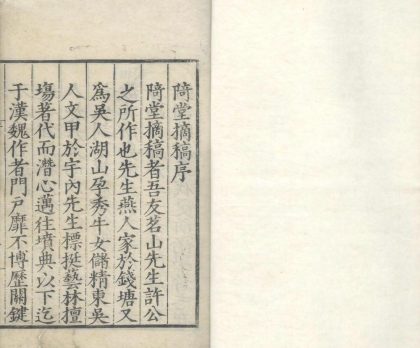 陭堂摘稿序
陭堂摘稿者吾友茗山先生許公
之所作也先生燕人家於錢塘又
為吳人湖山孕秀牛女儲精東吳
人文甲於宇內先生標挺藝林擅
塲著代而潛心邁往墳典以下迄
于漢魏作者門戶靡不博歷關鍵